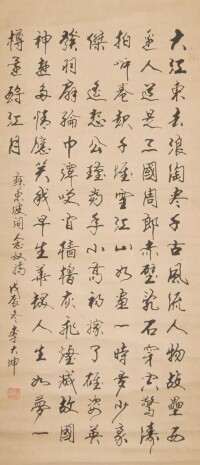 大江東去浪淘盡千古風流人物故壘西
邊人道是三國周郎赤壁亂石穿空驚濤
拍岸卷起千堆雪江山如畫一時多少豪
傑遙想公瑾當年小喬初嫁了雄姿英
發羽扇綸巾談笑間檣櫓灰飛煙滅故國
神遊多情應笑我早生華髮人生如夢一
樽還酹江月 蘇東坡詞念奴嬌 戊辰冬李大坤